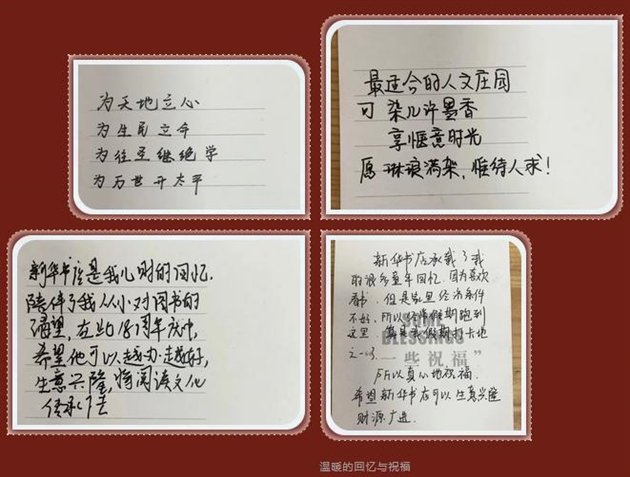 为天地立心
为生民立命
为往圣继绝学
为万世开太平
最适合的人文庄园
可染几许墨香
享惬意时光
愿琳琅满架，惟待人求！
新华书店是我儿时的回忆.
陪伴了我从小对图书的
渴望，在此18周年庆中,
希望他可以越办越好,
生意兴隆,将阅读文化
传承
新华书店承载了我
的很多童年回忆.因为喜欢
看书,但是家里经济条件
不好,所以经常假期跑到
这里,算是我假期打卡地
之一
SOME
BLESSINGS
一些祝福”
所以真心地祝福.
希望新华书店可以生意兴隆
财源广进.
温暖的回忆与祝福